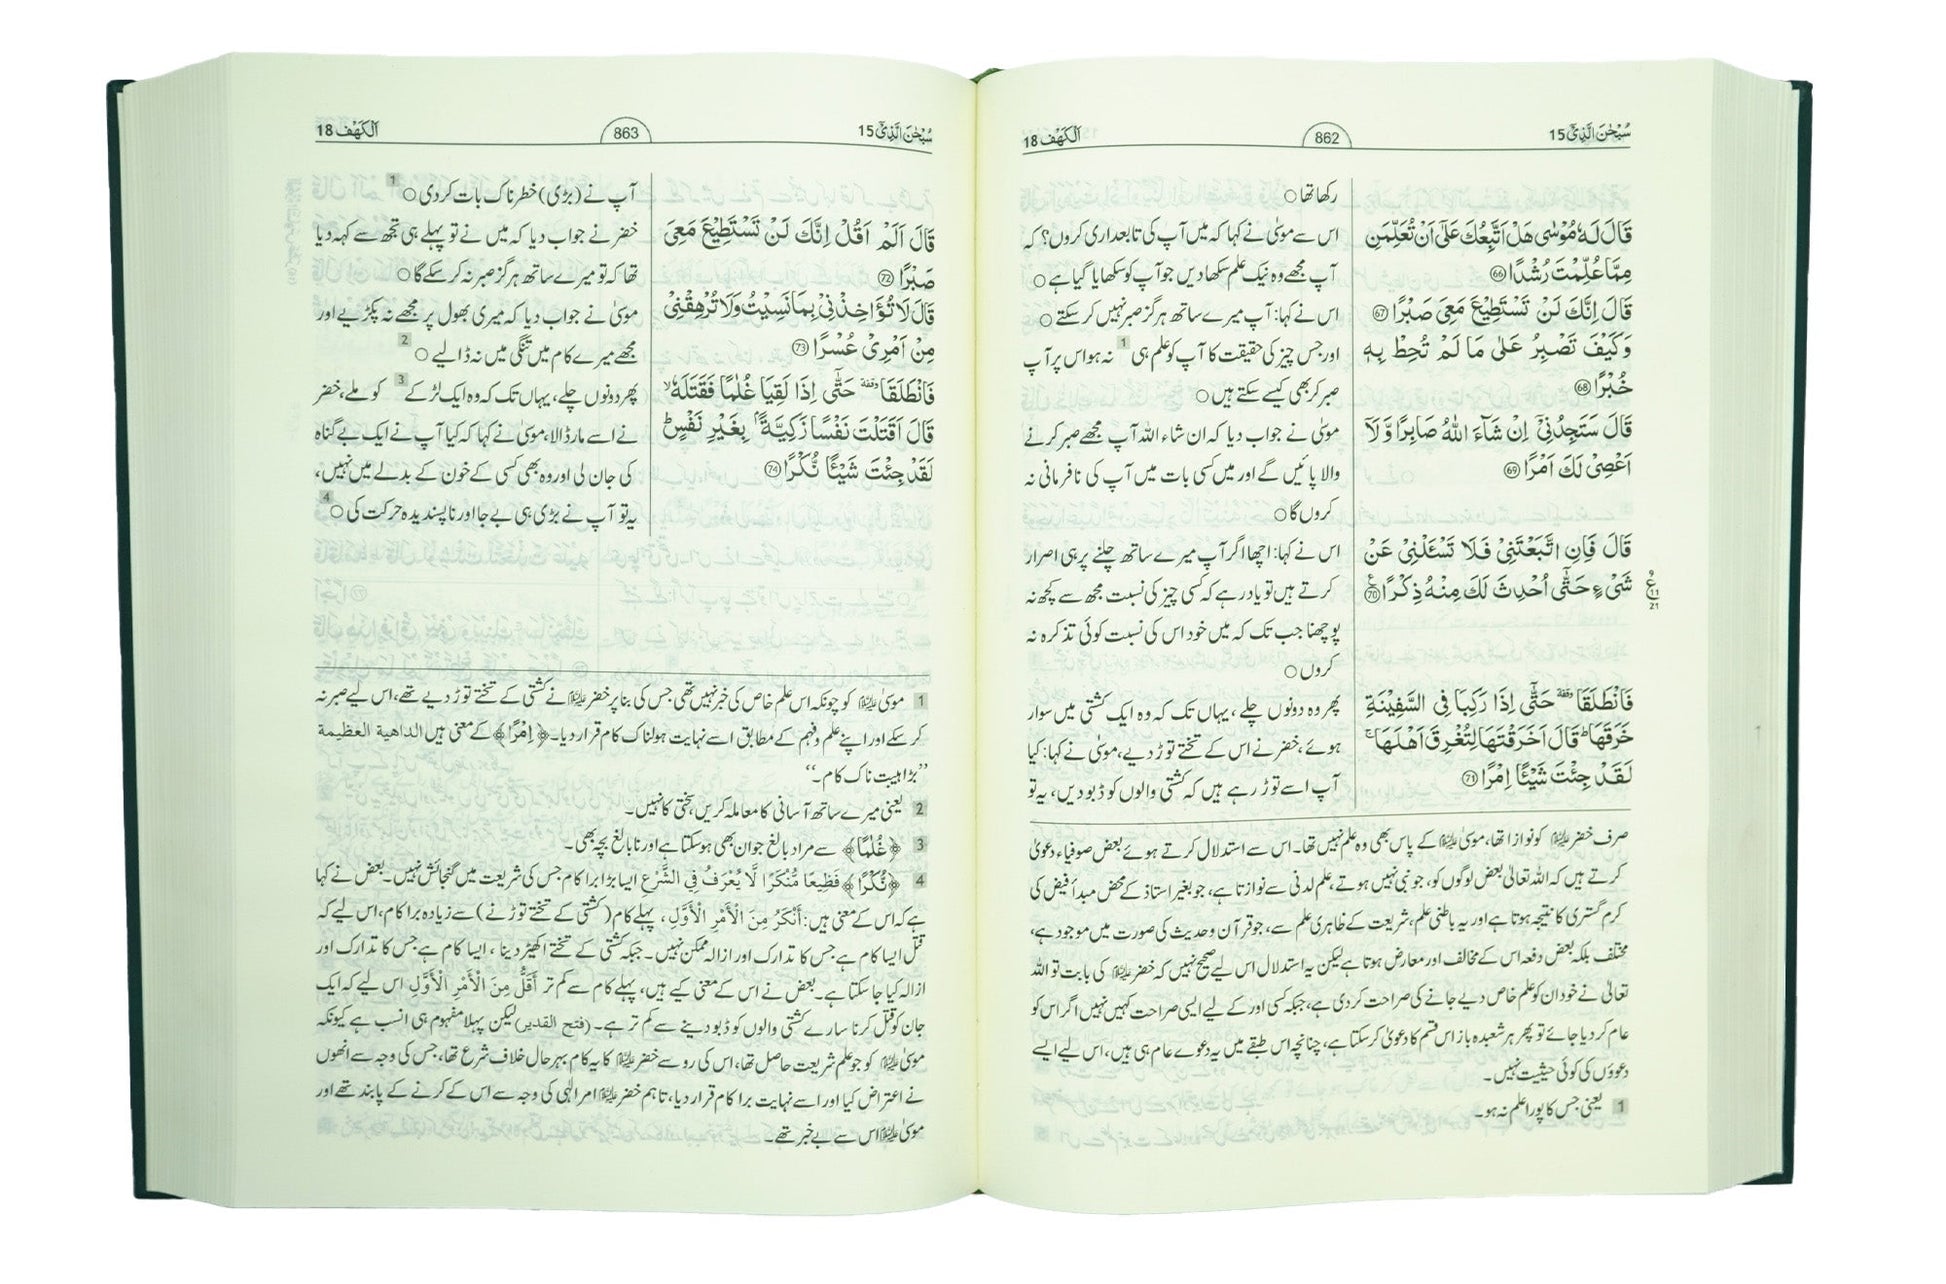 سُبْحٰنَ الَّذِیْٓ 15
862
اَلْکَهْف 18
قَالَ لَهٗ مُوْسٰی هَلْ اَتَّبِعُكَ عَلٰٓی اَنْ تُعَلِّمَنِ
مِمَّا عُلِّمْتَ رُشْدًا ﴿66﴾
قَالَ اِنَّكَ لَنْ تَسْتَطِیْعَ مَعِیَ صَبْرًا ﴿67﴾
وَكَیْفَ تَصْبِرُ عَلٰی مَا لَمْ تُحِطْ بِهٖ
خُبْرًا ﴿68﴾
قَالَ سَتَجِدُنِیْٓ اِنْ شَآءَ اللّٰهُ صَابِرًا وَّ لَآ
اَعْصِیْ لَكَ اَمْرًا ﴿69﴾
قَالَ فَاِنِ اتَّبَعْتَنِیْ فَلَا تَسْـَٔلْنِیْ عَنْ
شَیْءٍ حَتّٰٓی اُحْدِثَ لَكَ مِنْهُ ذِكْرًا ﴿70﴾
فَانْطَلَقَا ۥ حَتّٰٓی اِذَا رَكِبَا فِی السَّفِیْنَةِ
خَرَقَهَا ؕ قَالَ اَخَرَقْتَهَا لِتُغْرِقَ اَهْلَهَا ۚ
لَقَدْ جِئْتَ شَیْـًٔا اِمْرًا ﴿71﴾
رکھا تھا ○
اس سے موسیٰ نے کہا کہ میں آپ کی تابعداری کروں؟ کہ
آپ مجھے وہ نیک علم سکھا دیں جو آپ کو سکھایا گیا ہے ○
اس نے کہا: آپ میرے ساتھ ہرگز صبر نہیں کر سکتے ○
اور جس چیز کی حقیقت کا آپ کو علم ہی 1 نہ ہو اس پر آپ
صبر کر بھی کیسے سکتے ہیں ○
موسیٰ نے جواب دیا کہ ان شاء اللہ آپ مجھے صبر کرنے
والا پائیں گے اور میں کسی بات میں آپ کی نافرمانی نہ
کروں گا ○
اس نے کہا: اچھا اگر آپ میرے ساتھ چلنے پر ہی اصرار
کرتے ہیں تو یاد رہے کہ کسی چیز کی نسبت مجھ سے کچھ نہ
پوچھنا جب تک کہ میں خود اس کی نسبت کوئی تذکرہ نہ
کروں ○
پھر وہ دونوں چلے، یہاں تک کہ وہ ایک کشتی میں سوار
ہوئے، خضر نے اس کے تختے توڑ دیے، موسیٰ نے کہا: کیا
آپ اسے توڑ رہے ہیں کہ کشتی والوں کو ڈبو دیں، یہ تو
صرف خضر علیہ السلام کو نوازا تھا، موسیٰ علیہ السلام کے پاس بھی وہ علم نہیں تھا۔ اس سے استدلال کرتے ہوئے بعض صوفیاء دعویٰ
کرتے ہیں کہ اللہ تعالیٰ بعض لوگوں کو، جو نبی نہیں ہوتے، علم لدنی سے نوازتا ہے، جو بغیر استاذ کے محض مبدأ فیض کی
کرم گستری کا نتیجہ ہوتا ہے اور یہ باطنی علم، شریعت کے ظاہری علم سے، جو قرآن و حدیث کی صورت میں موجود ہے،
مختلف بلکہ بعض دفعہ اس کے مخالف اور معارض ہوتا ہے لیکن یہ استدلال اس لیے صحیح نہیں کہ خضر علیہ السلام کی بابت تو اللہ
تعالیٰ نے خود ان کو علم خاص دیے جانے کی صراحت کر دی ہے، جبکہ کسی اور کے لیے ایسی صراحت کہیں نہیں اگر اس کو
عام کر دیا جائے تو پھر ہر شعبدہ باز اس قسم کا دعویٰ کر سکتا ہے، چنانچہ اس طبقے میں یہ دعوے عام ہی ہیں، اس لیے ایسے
دعوؤں کی کوئی حیثیت نہیں۔
1 یعنی جس کا پورا علم نہ ہو۔
سُبْحٰنَ الَّذِیْٓ 15
863
اَلْکَهْف 18
قَالَ اَلَمْ اَقُلْ اِنَّكَ لَنْ تَسْتَطِیْعَ مَعِیَ
صَبْرًا ﴿72﴾
قَالَ لَا تُؤَاخِذْنِیْ بِمَا نَسِیْتُ وَلَا تُرْهِقْنِیْ
مِنْ اَمْرِیْ عُسْرًا ﴿73﴾
فَانْطَلَقَا ۥ حَتّٰٓی اِذَا لَقِیَا غُلٰمًا فَقَتَلَهٗ ۙ
قَالَ اَقَتَلْتَ نَفْسًا زَكِیَّةًۢ بِغَیْرِ نَفْسٍ ؕ
لَقَدْ جِئْتَ شَیْـًٔا نُّكْرًا ﴿74﴾
آپ نے (بڑی) خطرناک بات کر دی ○ 1
خضر نے جواب دیا کہ میں نے تو پہلے ہی تجھ سے کہہ دیا
تھا کہ تو میرے ساتھ ہرگز صبر نہ کر سکے گا ○
موسیٰ نے جواب دیا کہ میری بھول پر مجھے نہ پکڑیے اور
مجھے میرے کام میں تنگی میں نہ ڈالیے ○ 2
پھر دونوں چلے، یہاں تک کہ وہ ایک لڑکے 3 کو ملے، خضر
نے اسے مار ڈالا، موسیٰ نے کہا کہ کیا آپ نے ایک بے گناہ
کی جان لی اور وہ بھی کسی کے خون کے بدلے میں نہیں،
یہ تو آپ نے بڑی ہی بے جا اور ناپسندیدہ حرکت کی ○ 4
1 موسیٰ علیہ السلام کو چونکہ اس علم خاص کی خبر نہیں تھی جس کی بنا پر خضر علیہ السلام نے کشتی کے تختے توڑ دیے تھے، اس لیے صبر نہ
کر سکے اور اپنے علم و فہم کے مطابق اسے نہایت ہولناک کام قرار دیا۔ ﴿اِمْرًا﴾ کے معنی ہیں الداهية العظيمة
”بڑا ہیبت ناک کام۔“
2 یعنی میرے ساتھ آسانی کا معاملہ کریں، سختی کا نہیں۔
3 ﴿غُلٰمًا﴾ سے مراد بالغ جوان بھی ہو سکتا ہے اور نابالغ بچہ بھی۔
4 ﴿نُّكْرًا﴾ فَظِيعًا مُّنْكَرًا لَّا يُعْرَفُ فِي الشَّرْعِ ایسا بڑا برا کام جس کی شریعت میں گنجائش نہیں۔ بعض نے کہا
ہے کہ اس کے معنی ہیں: أَنْكَرُ مِنَ الْأَمْرِ الْأَوَّلِ، پہلے کام (کشتی کے تختے توڑنے) سے زیادہ برا کام، اس لیے کہ
قتل ایسا کام ہے جس کا تدارک اور ازالہ ممکن نہیں۔ جبکہ کشتی کے تختے اکھیڑ دینا، ایسا کام ہے جس کا تدارک اور
ازالہ کیا جا سکتا ہے۔ بعض نے اس کے معنی کیے ہیں، پہلے کام سے کم تر أَقَلُّ مِنَ الْأَمْرِ الْأَوَّلِ اس لیے کہ ایک
جان کو قتل کرنا سارے کشتی والوں کو ڈبو دینے سے کم تر ہے۔ (فتح القدير) لیکن پہلا مفہوم ہی انسب ہے کیونکہ
موسیٰ علیہ السلام کو جو علم شریعت حاصل تھا، اس کی رو سے خضر علیہ السلام کا یہ کام بہر حال خلاف شرع تھا، جس کی وجہ سے انھوں
نے اعتراض کیا اور اسے نہایت برا کام قرار دیا، تاہم خضر علیہ السلام امر الٰہی کی وجہ سے اس کے کرنے کے پابند تھے اور
موسیٰ علیہ السلام اس سے بے خبر تھے۔